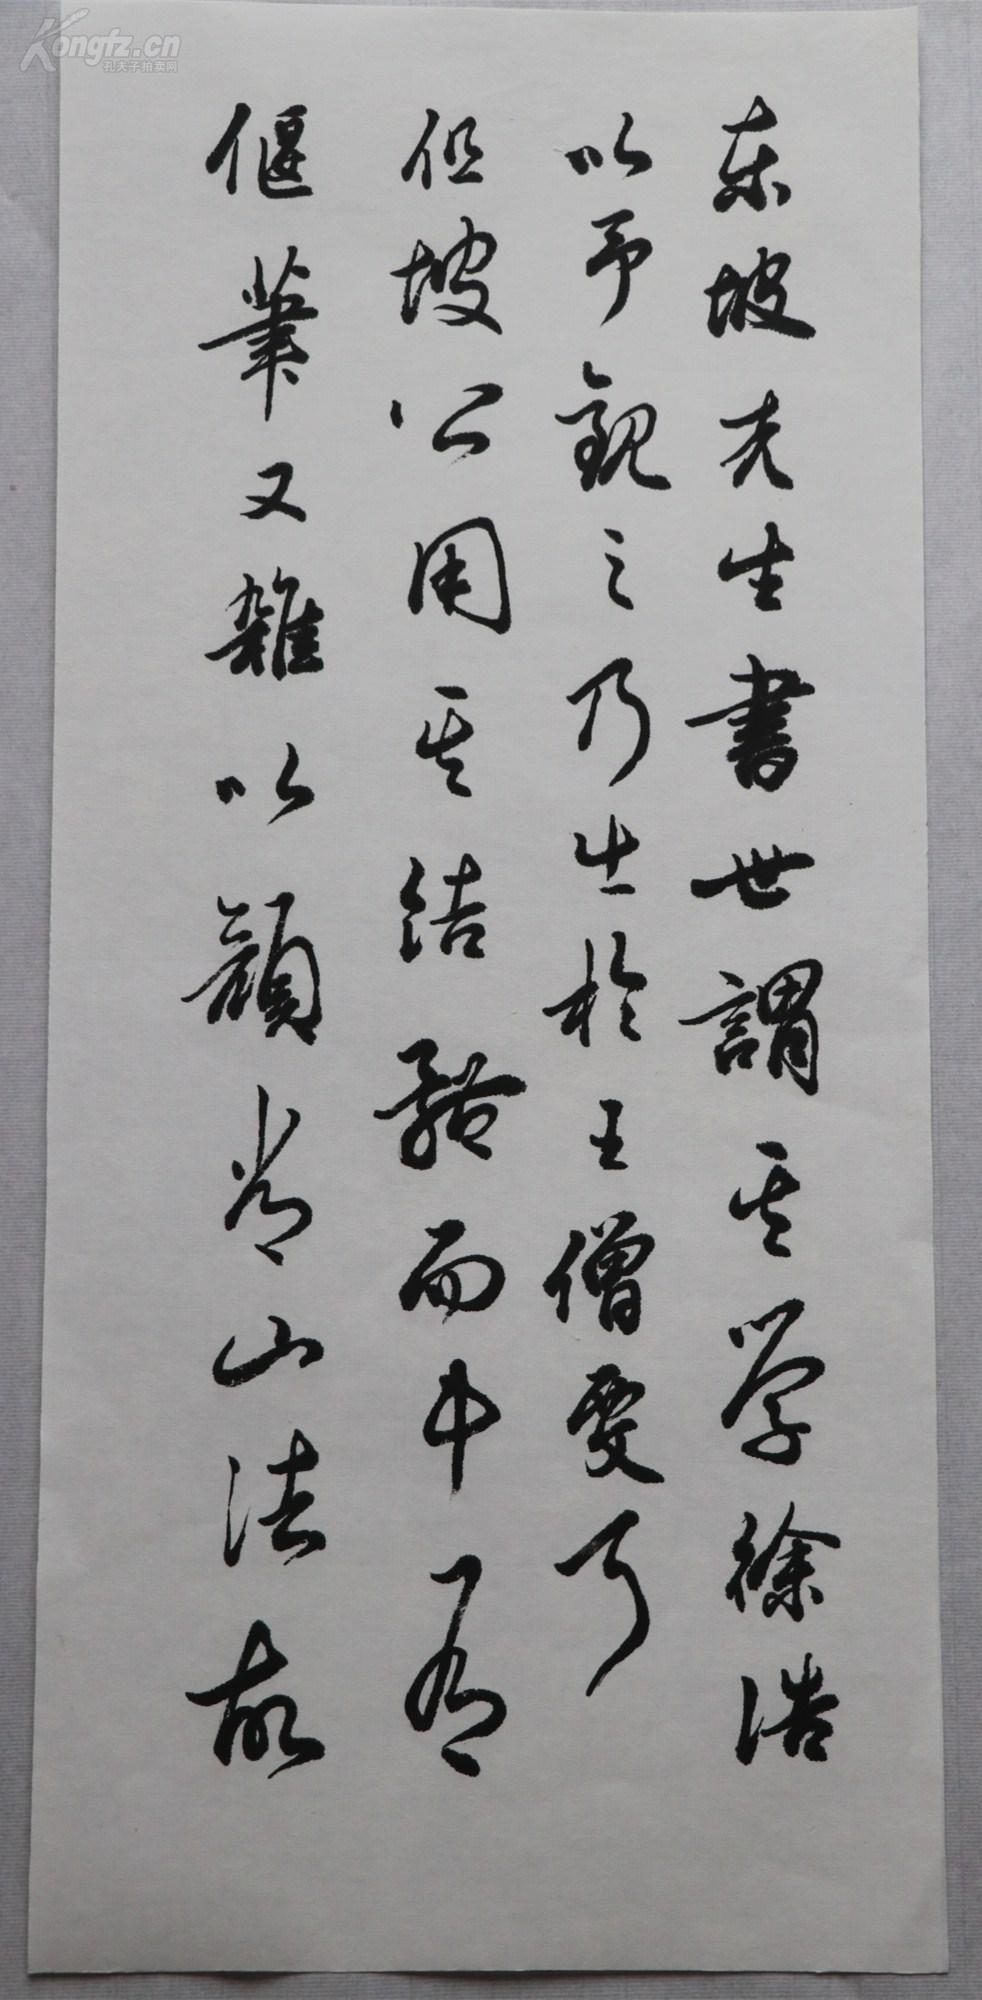 Kongfz.cn
孔夫子拍卖网
東坡先生書世謂其学徐浩
以予觀之乃出於王僧虔耳
但坡公用其結體而中有
偃筆又雜以顏常山法故